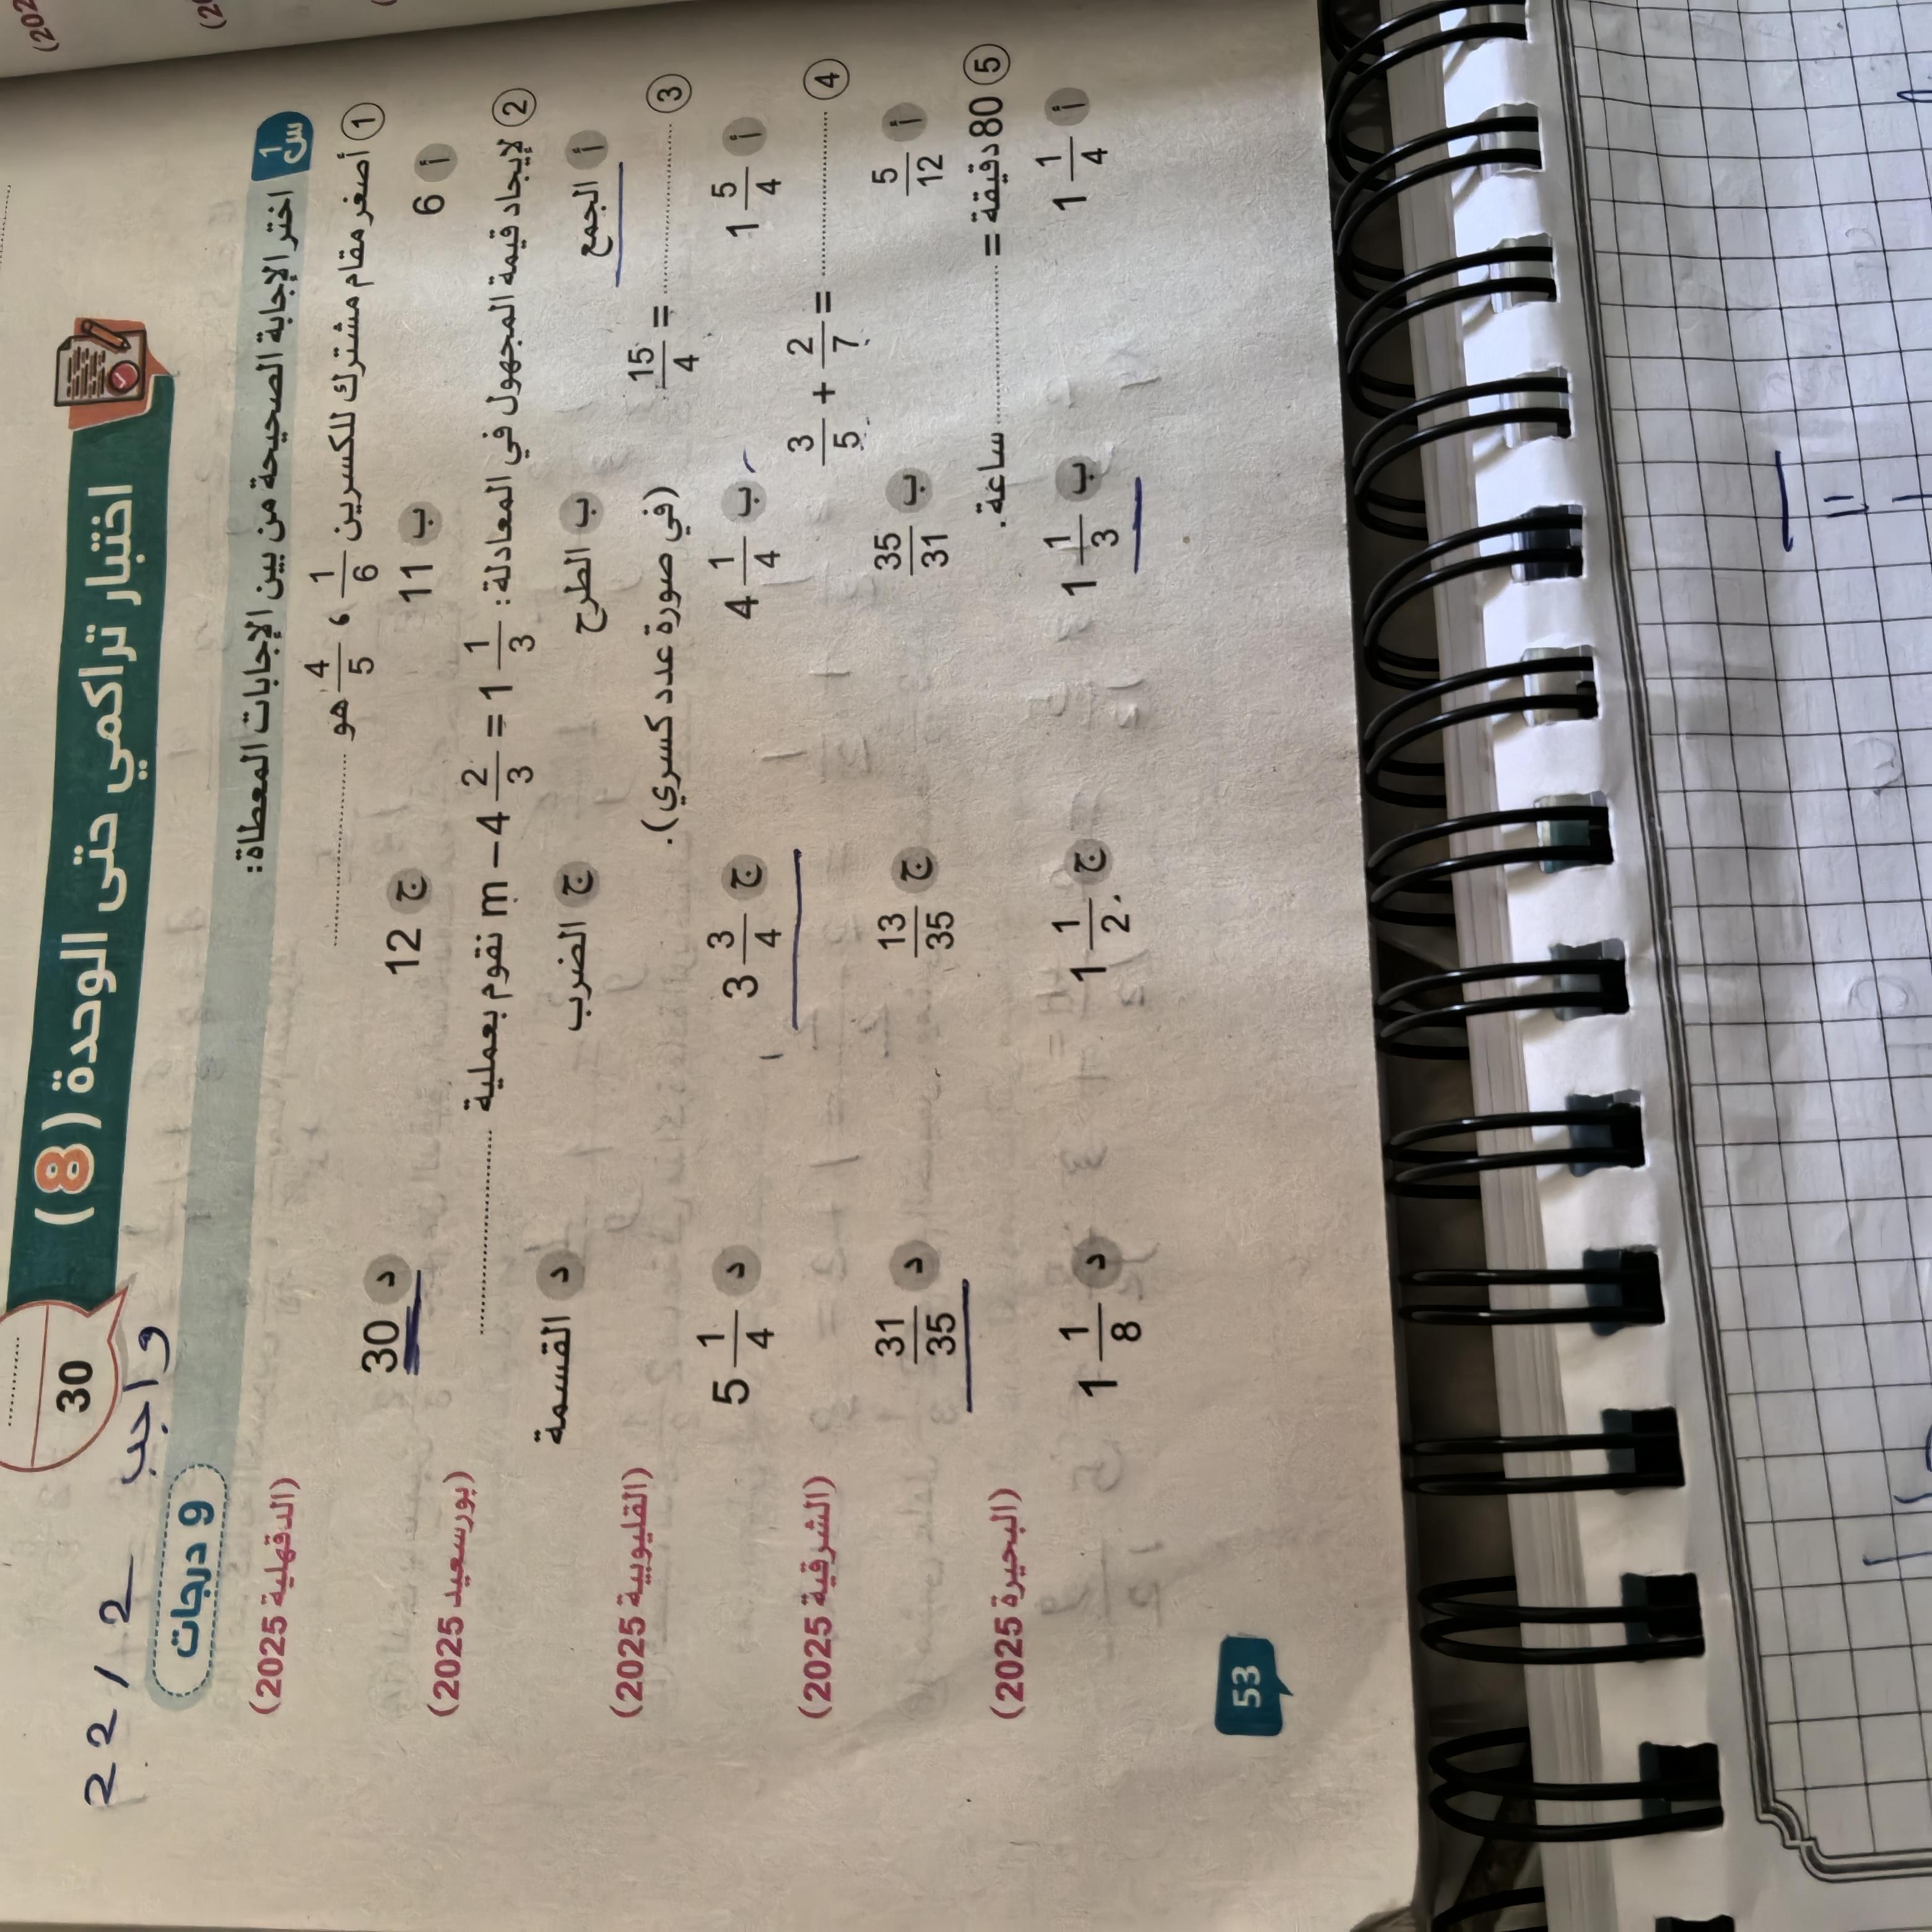 22/2 واجب
30
اختبار تراكمي حتى الوحدة (8)
س1 اختر الإجابة الصحيحة من بين الإجابات المعطاة: 9 درجات
1 أصغر مقام مشترك للكسرين 1/6 ، 4/5 هو .......... (الدقهلية 2025)
أ 6 ب 11 ج 12 د 30
2 لإيجاد قيمة المجهول في المعادلة: m − 4 2/3 = 1 1/3 نقوم بعملية .......... (بورسعيد 2025)
أ الجمع ب الطرح ج الضرب د القسمة
3 .......... = 15/4 (في صورة عدد كسري). (القليوبية 2025)
أ 1 5/4 ب 4 1/4 ج 3 3/4 د 5 1/4
4 .......... = 3/5 + 2/7 (الشرقية 2025)
أ 5/12 ب 35/31 ج 13/35 د 31/35
5 80 دقيقة = .......... ساعة. (البحيرة 2025)
أ 1 1/4 ب 1 1/3 ج 1 1/2 د 1 1/8
53